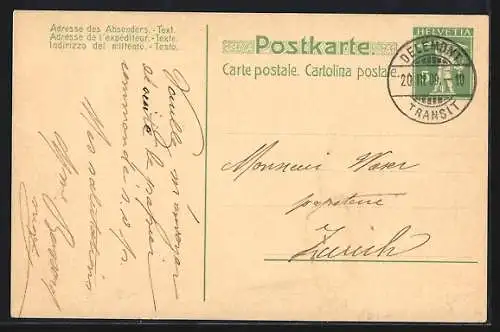 Adresse des Absenders. - Text.
Adresse de l'expéditeur. - Texte.
Indirizzo del mittente. - Testo.
Postkarte.
Carte postale. Cartolina postale.
HELVETIA
DELÉMONT
20 III 09 10
TRANSIT
Veuillez m'envoyer
de suite le papier
commande
Mes salutations
Monsieur Waser
papeterie
Zurich